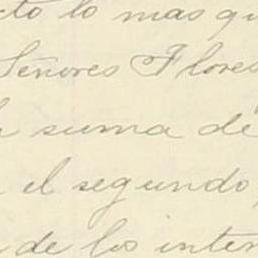 cto lo mas qu
Señores Flores
suma de
el segundo,
de los inter